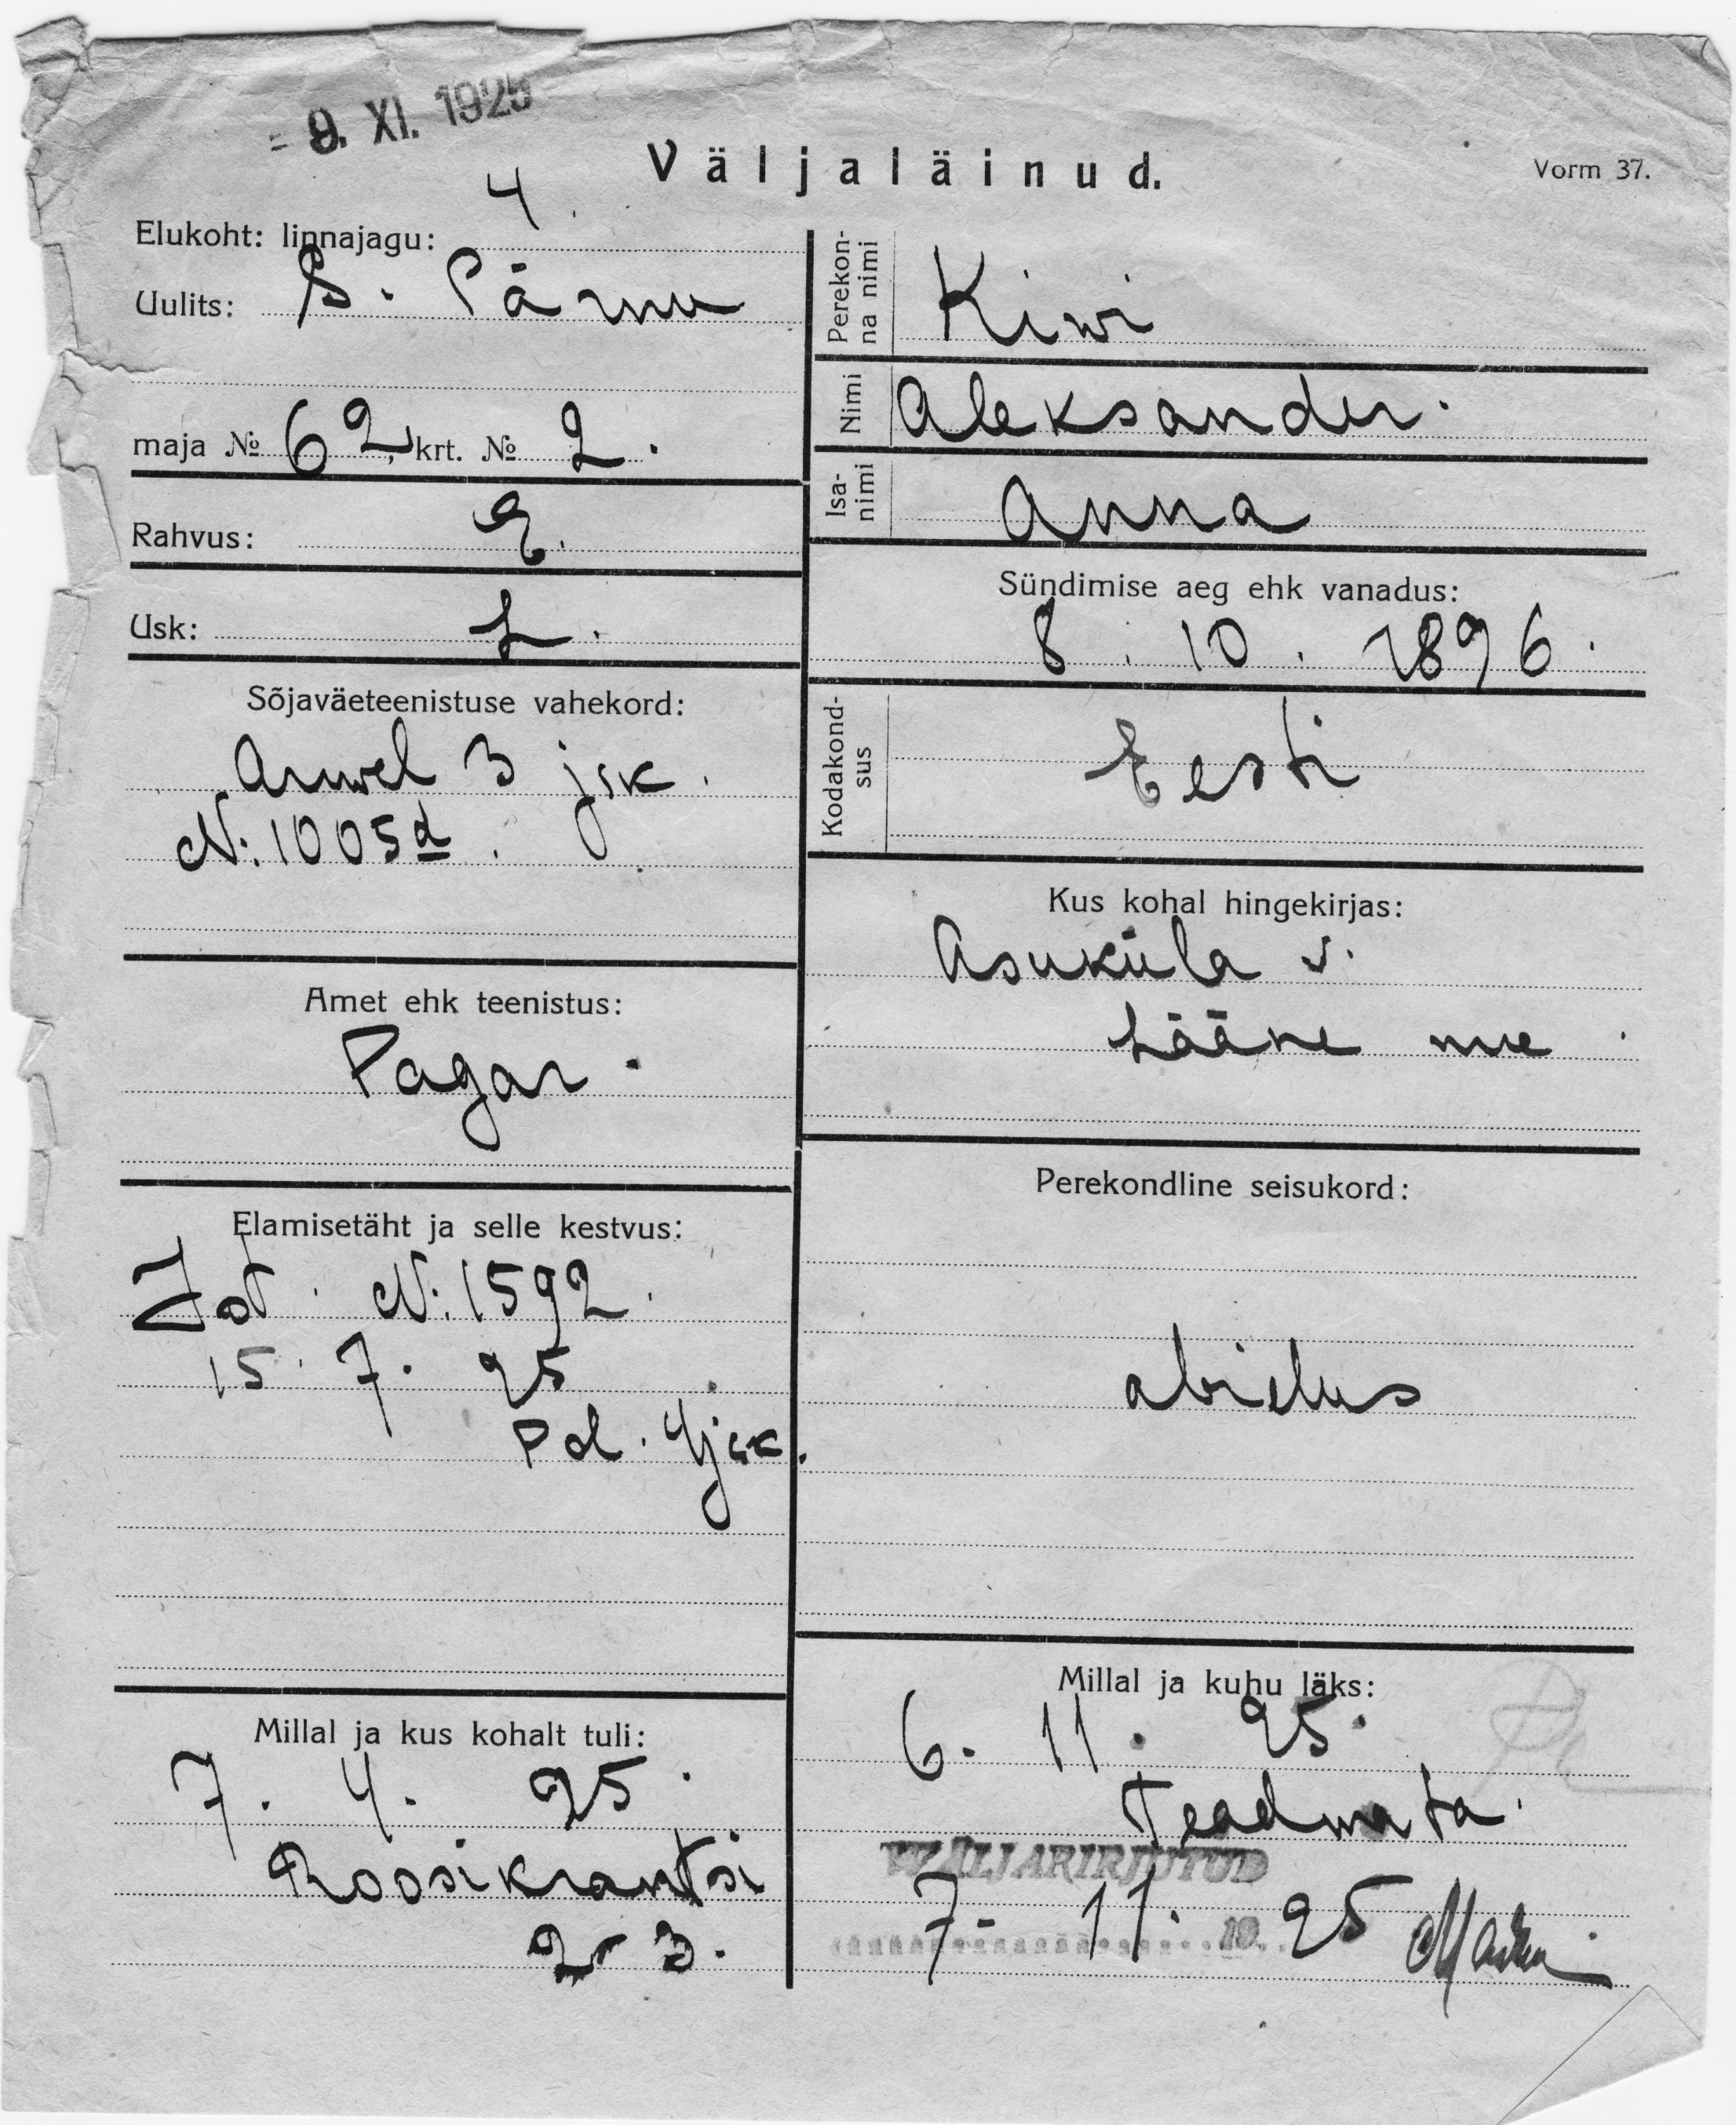 9. XI. 1925
Väljaläinud.
Vorm 37.
Elukoht: linnajagu: 4.
Uulits: S. Pärnu
maja № 62, krt. № 2.
Rahvus: E.
Usk: L.
Sõjaväeteenistuse vahekord:
Arwel 3 jsk.
N: 1005d.
Amet ehk teenistus:
Pagar.
Elamisetäht ja selle kestvus:
Ist. N: 1592.
15. 7. 25
Pol. 4 jsk.
Millal ja kus kohalt tuli:
7. 4. 25.
Roosikrantsi
2-3.
Perekonna nimi
Kiwi
Nimi
Aleksander.
Isanimi
Anna
Sündimise aeg ehk vanadus:
8. 10. 1896.
Kodakondsus
Eesti
Kus kohal hingekirjas:
Asuküla v.
Lääne me
Perekondline seisukord:
abielus
Millal ja kuhu läks:
6. 11. 25.
Teadmata.
WÄLJAKIRJUTUD
7. 11. 19 25